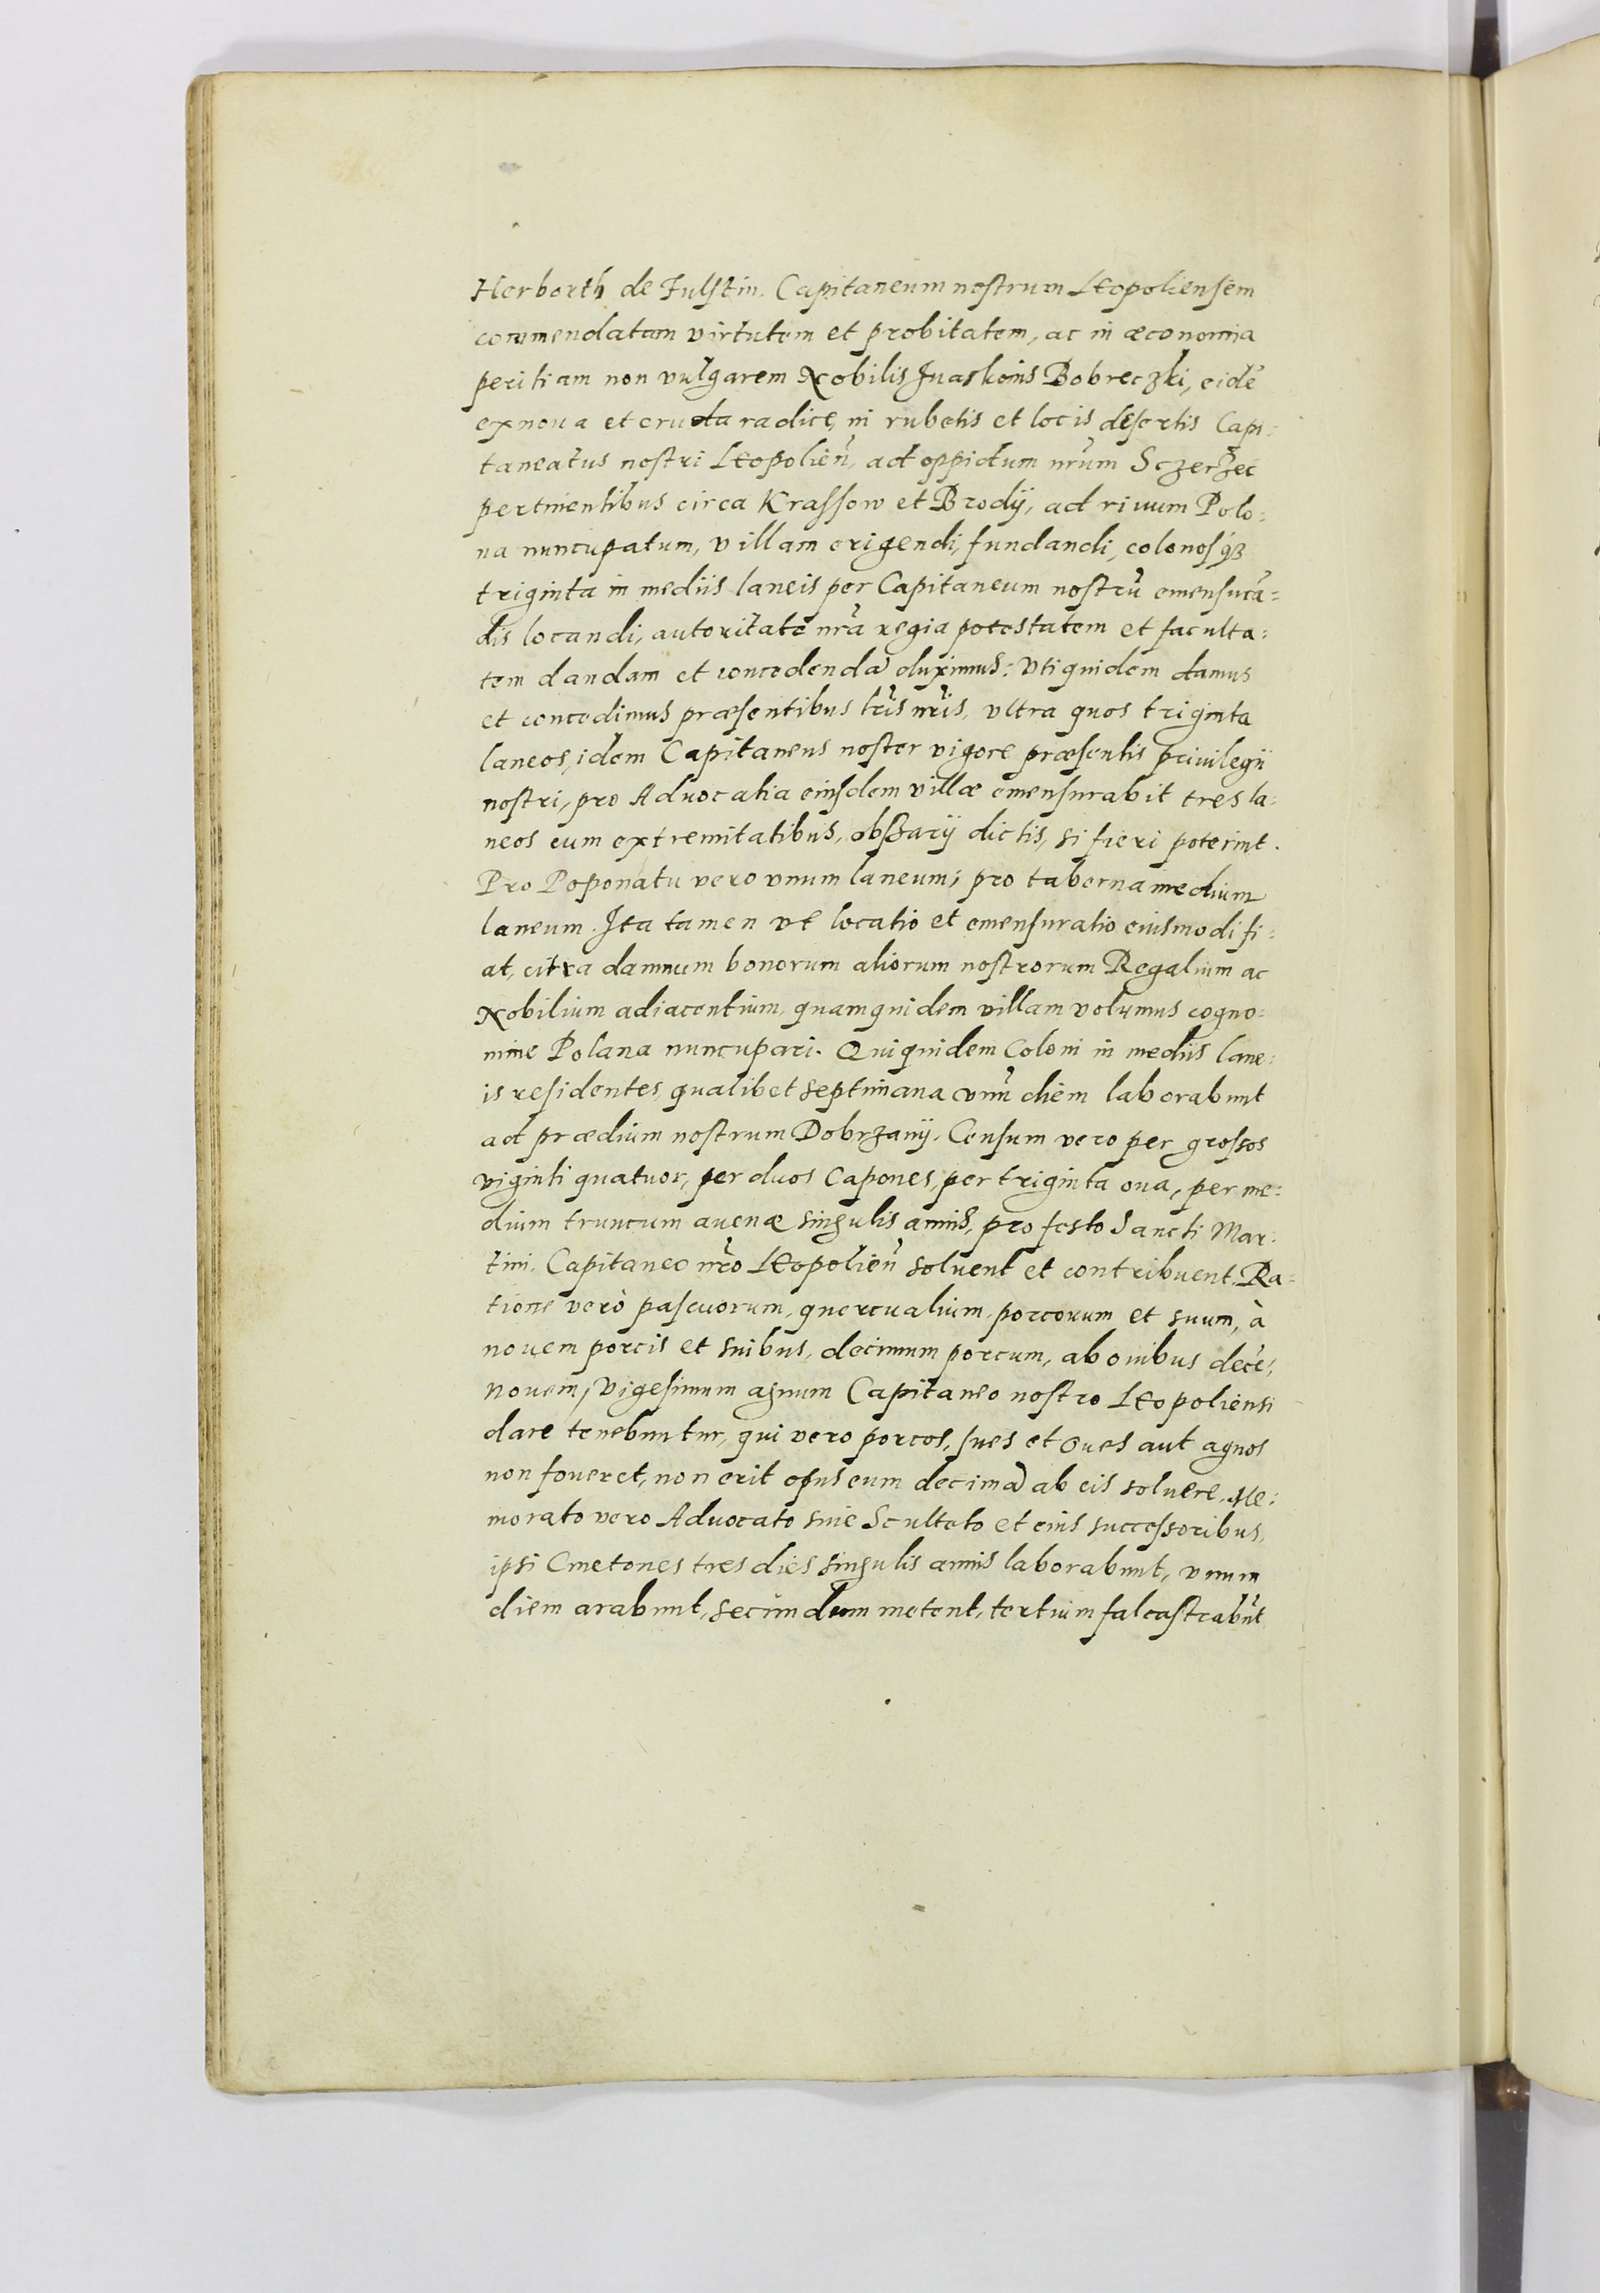 Herborth de Fulstin, Capitaneum nostrum Leopoliensem
commendatam virtutem et probitatem, ac in œconomia
peritiam non vulgarem Nobilis Ivaskonis Bobreczki, eidē
ex nova et cruda radice, in rubetis et locis desertis Capi:
taneatus nostri Leopolien̄, ad oppidum nr̄um Sczerzec
pertinentibus circa Krassow et Brodÿ, ad rivum Polo:
na nuncupatum, villam erigendi, fundandi, colonosq́ꝫ
triginta in mediis laneis per Capitaneum nostrū emensurā=
dis locandi, autoritate nr̄a regia potestatem et faculta:
tem dandam et concedendā duximus: Vti quidem damus
et concedimus præsentibus lr̄is nr̄is, vltra quos triginta
laneos, idem Capitaneus noster vigore præsentis privilegii
nostri, pro Advocatia eiusdem villæ emensurabit tres la:
neos cum extremitatibus, obszarÿ dictis, si fieri poterint.
Pro Poponatu vero vnum laneum, pro taberna medium
laneum. Ita tamen vt locatio et emensuratio eiusmodi fi:
at, citra damnum bonorum aliorum nostrorum Regalium ac
Nobilium adiacentium, quamquidem villam volumus cogno:
mine Polana nuncupari. Quiquidem Coloni in mediis lane:
is residentes, qualibet septimana vnū diem laborabunt
ad prædium nostrum Dobrzanÿ. Censum vero per grossos
viginti quatuor, per duos Capones, per triginta ova, per me:
dium truncum avenæ singulis annis, pro festo Sancti Mar:
tini. Capitaneo nr̄o Leopolien̄ solvent et contribuent. Ra=
tione verò pascuorum, quercualium, porcorum et suum, à
novem porcis et suibus, decimum porcum, ab ovibus decē:
novem, vigesimum agnum Capitaneo nostro Leopoliensi
dare tenebuntur, qui vero porcos, sues et oves aut agnos
non foveret, non erit opus eum decimā ab eis solvere. Me:
morato vero Advocato sive Sculteto et eius successoribus,
ipsi Cmetones tres dies singulis annis laborabunt, vnum
diem arabunt, secundum metent, tertium falcastrabūt